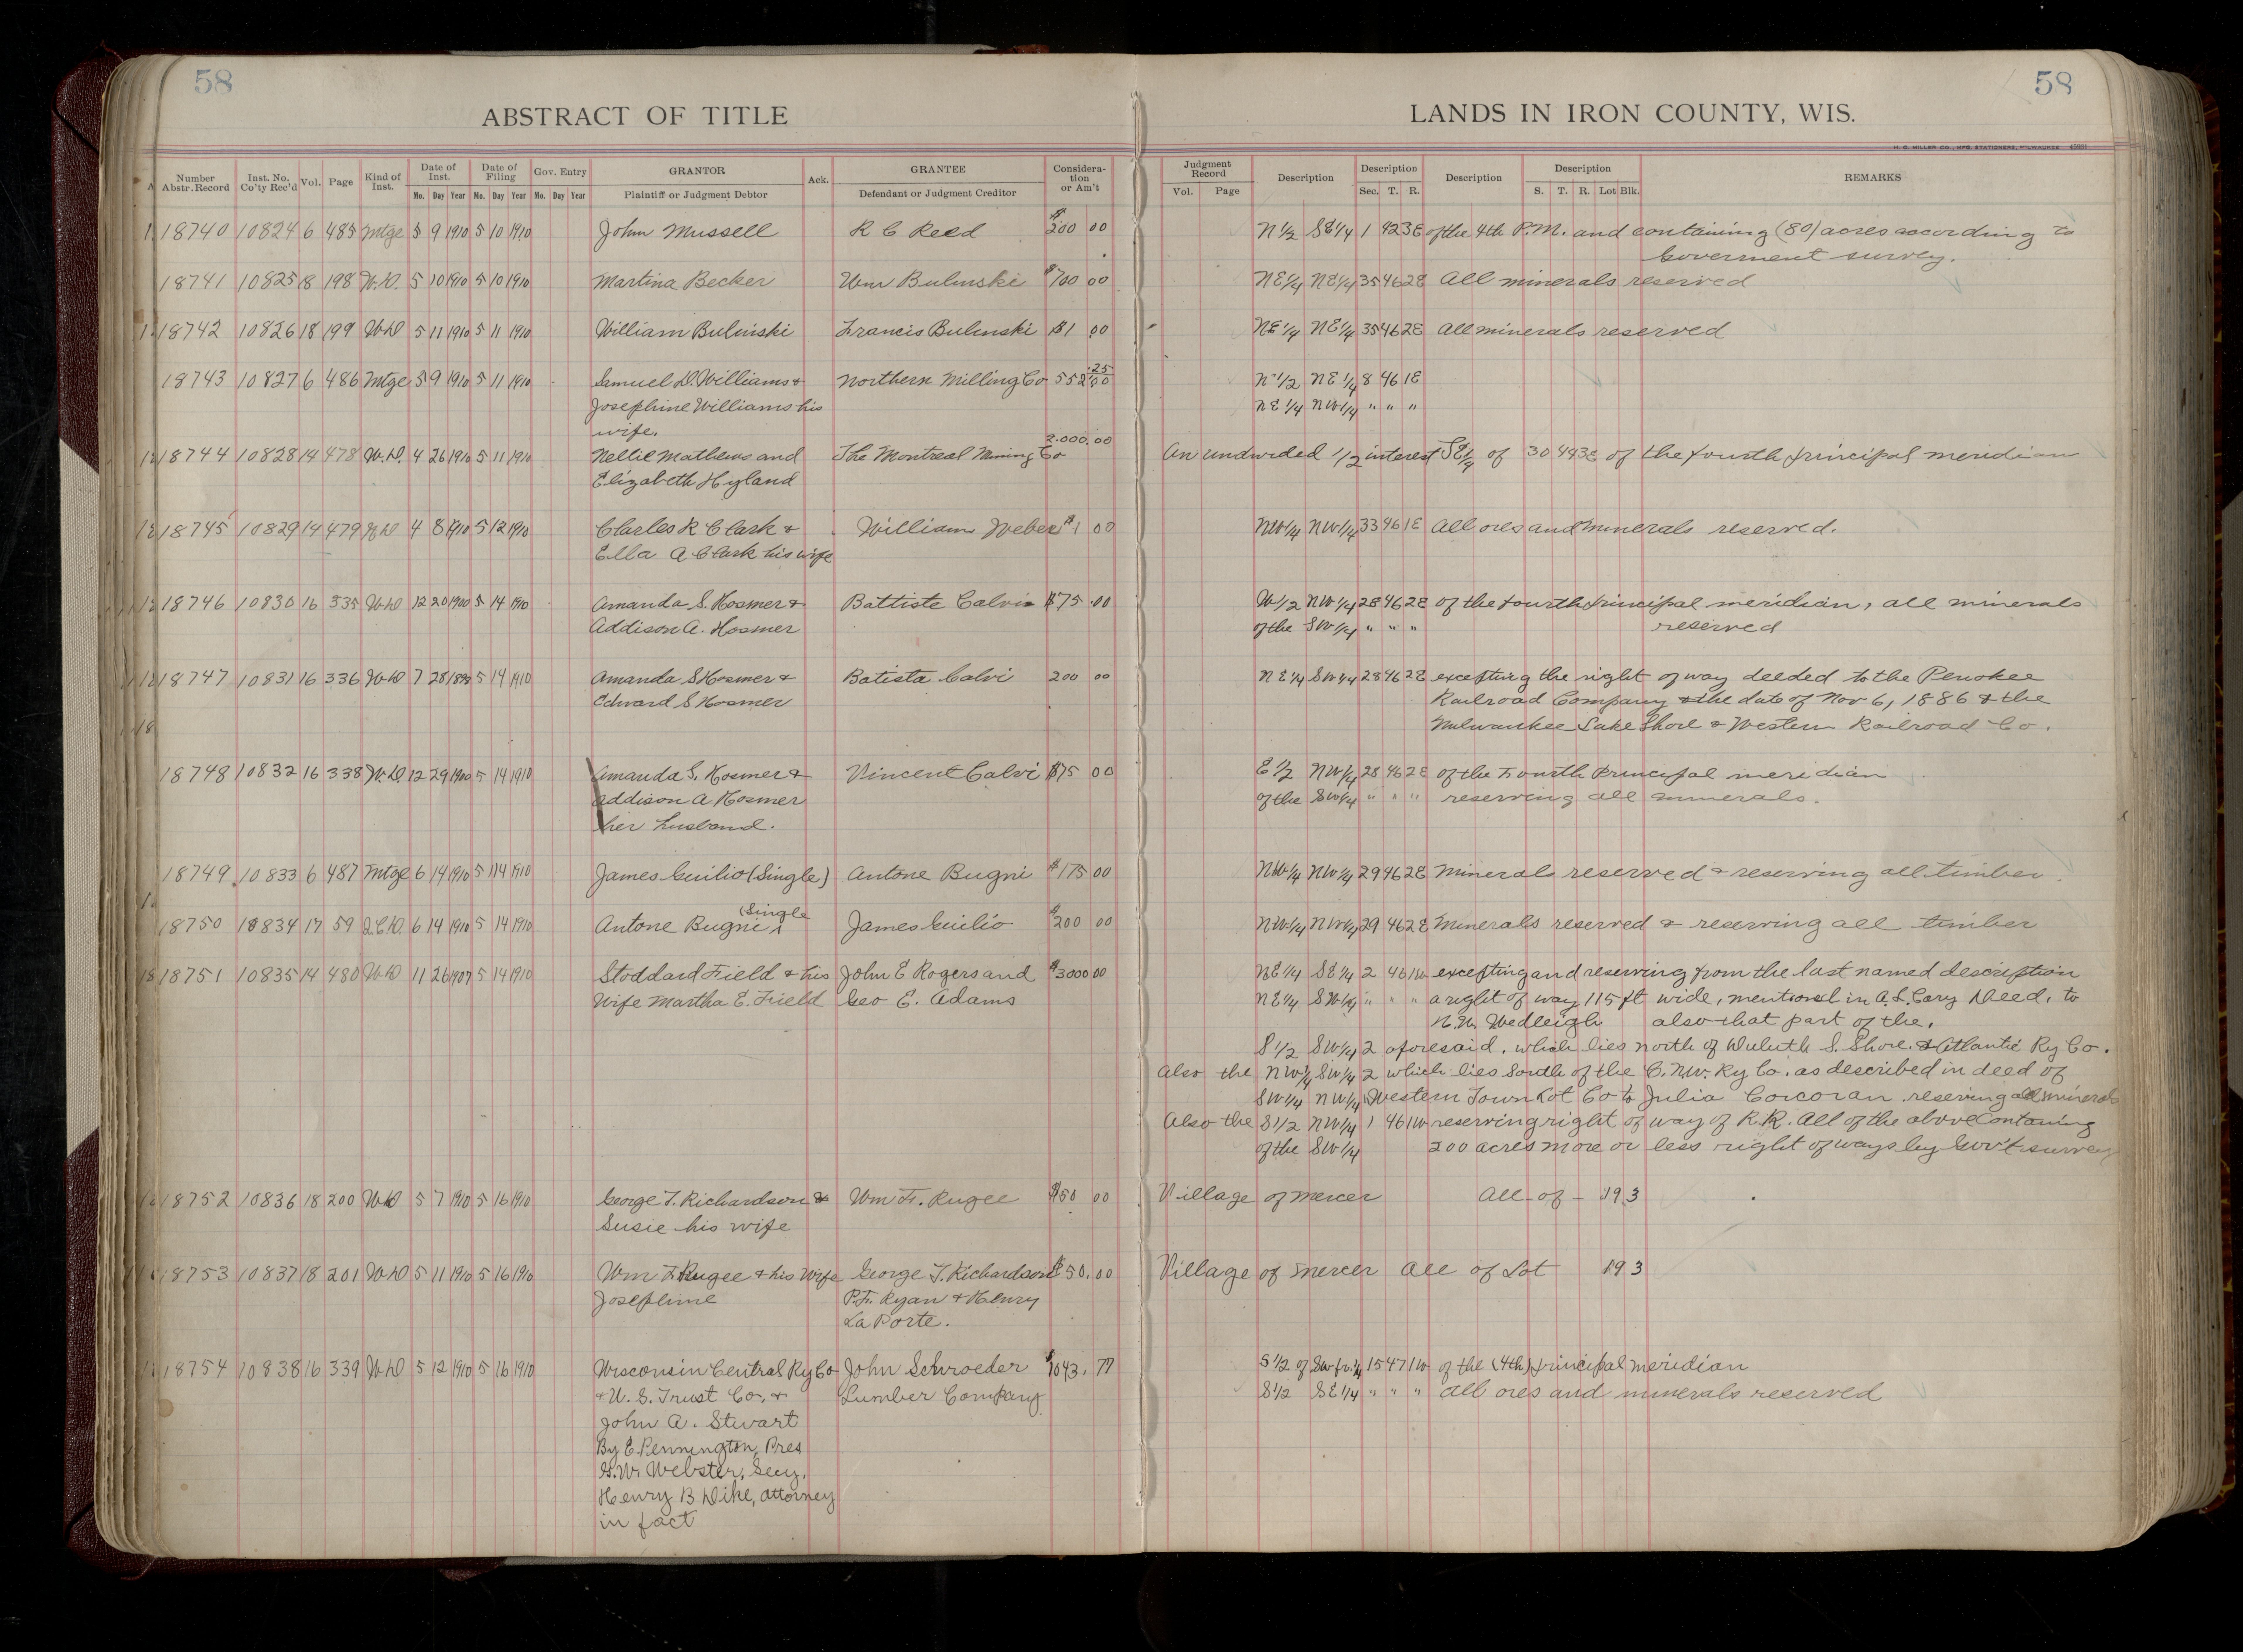 58
58
ABSTRACT OF TITLE
LANDS IN IRON COUNTY, WIS.
H. C. MILLER CO., MFG. STATIONERS, MILWAUKEE
Number Abstr. Record Inst. No. Co'ty Rec'd Vol. Page Kind of Inst. Date of Inst. Mo. Day Year Date of Filing Mo. Day Year Gov. Entry Mo. Day Year GRANTOR Plaintiff or Judgment Debtor Ack. GRANTEE Defendant or Judgment Creditor Considera-tion or Am't
Judgment Record Vol. Page Description Description Sec. T. R. Description Description S. T. R. Lot Blk. REMARKS
18740 10824 6 485 Mtge 5 9 1910 5 10 1910 John Mussell R C Reed $200 00 N 1/2 SE 1/4 1 42 3E of the 4th P.M. and containing (80) acres according to
Goverment survey.
18741 10825 18 198 W.D. 5 10 1910 5 10 1910 Martina Becker Wm Bulinski $700 00 NE 1/4 NE 1/4 35 46 2E All minerals reserved
18742 10826 18 199 W.D 5 11 1910 5 11 1910 William Bulinski Francis Bulinski $1 00 NE 1/4 NE 1/4 35 46 2E All minerals reserved
18743 10827 6 486 Mtge 5 9 1910 5 11 1910 Samuel D. Williams & Northern Milling Co 552 .25 00 N 1/2 NE 1/4 8 46 1E
Josephine Williams his NE 1/4 NW 1/4 " " "
wife.
18744 10828 14 478 W.D. 4 26 1910 5 11 1910 Nellie Mathews and The Montreal Mining Co 2.000.00 An undivided 1/2 interest SE 1/4 of 30 44 3E of the fourth principal meridian
Elizabeth Hyland
18745 10829 14 479 W.D 4 8 1910 5 12 1910 Charles R Clark & William Weber $1 00 NW 1/4 NW 1/4 33 46 1E All ores and minerals reserved.
Ella A. Clark his wife
18746 10830 16 335 W.D 12 20 1900 5 14 1910 Amanda S. Hosmer & Battiste Calvi $75 .00 W 1/2 NW 1/4 28 46 2E of the fourth principal meridian, all minerals
Addison A. Hosmer of the SW 1/4 " " " reserved
18747 10831 16 336 W.D 7 28 1898 5 14 1910 Amanda S Hosmer & Batista Calvi 200 00 NE 1/4 SW 1/4 28 46 2E excepting the right of way deeded to the Penokee
Edward S Hosmer Railroad Company & the date of Nov 6, 1886 & the
Milwaukee Lake Shore & Western Railroad Co.
18748 10832 16 338 W.D 12 29 1900 5 14 1910 Amanda S. Hosmer & Vincent Calvi $75 00 E 1/2 NW 1/4 28 46 2E of the Fourth Principal meridian
Addison A Hosmer of the SW 1/4 " " " reserving all minerals.
her husband.
18749 10833 6 487 Mtge 6 14 1910 5 14 1910 James Guilio (Single) Antone Bugni $175 00 NW 1/4 NW 1/4 29 46 2E Minerals reserved & reserving all timber.
18750 10834 17 59 Q.C.D. 6 14 1910 5 14 1910 Antone Bugni (Single James Guilio $200 00 NW 1/4 NW 1/4 29 46 2E Minerals reserved & reserving all timber
18751 10835 14 480 W.D 11 26 1907 5 14 1910 Stoddard Field & his John E Rogers and $3000 00 NE 1/4 SE 1/4 2 46 1W excepting and reserving from the last named description
Wife Martha E. Field Geo E. Adams NE 1/4 SW 1/4 " " " a right of way 115 ft wide, mentioned in A. L. Cary Deed, to
also that part of the,
S 1/2 SW 1/4 2 aforesaid, which lies north of Duluth S. Shore & Atlantic Ry Co.
Also the NW 1/4 SW 1/4 2 which lies South of the C. N.W. Ry Co. as described in deed of
SW 1/4 NW 1/4 Western Town Lot Co to Julia Corcoran reserving all minerals
Also the S 1/2 NW 1/4 1 46 1W reserving right of way of R.R. All of the above Containing
of the SW 1/4 200 acres more or less right of ways by Gov't survey
18752 10836 18 200 W.D 5 7 1910 5 16 1910 George T. Richardson & Wm F. Rugee $50 00 Village of Mercer All of 19 3
Susie his wife
18753 10837 18 201 W.D 5 11 1910 5 16 1910 Wm F. Rugee & his Wife George T. Richardson $50. 00 Village of Mercer All of Lot 19 3
Josephine P.F. Ryan & Henry
La Porte.
18754 10838 16 339 W.D 5 12 1910 5 16 1910 Wisconsin Central Ry Co John Schroeder $1043. 77 S 1/2 of SW fr. 1/4 15 47 1W of the (4th) principal meridian
& U. S. Trust Co. & Lumber Company S 1/2 SE 1/4 " " " All ores and minerals reserved
John A. Stewart
By E. Pennington, Pres
G. W. Webster, Secy.
Henry B Dike, attorney
in fact